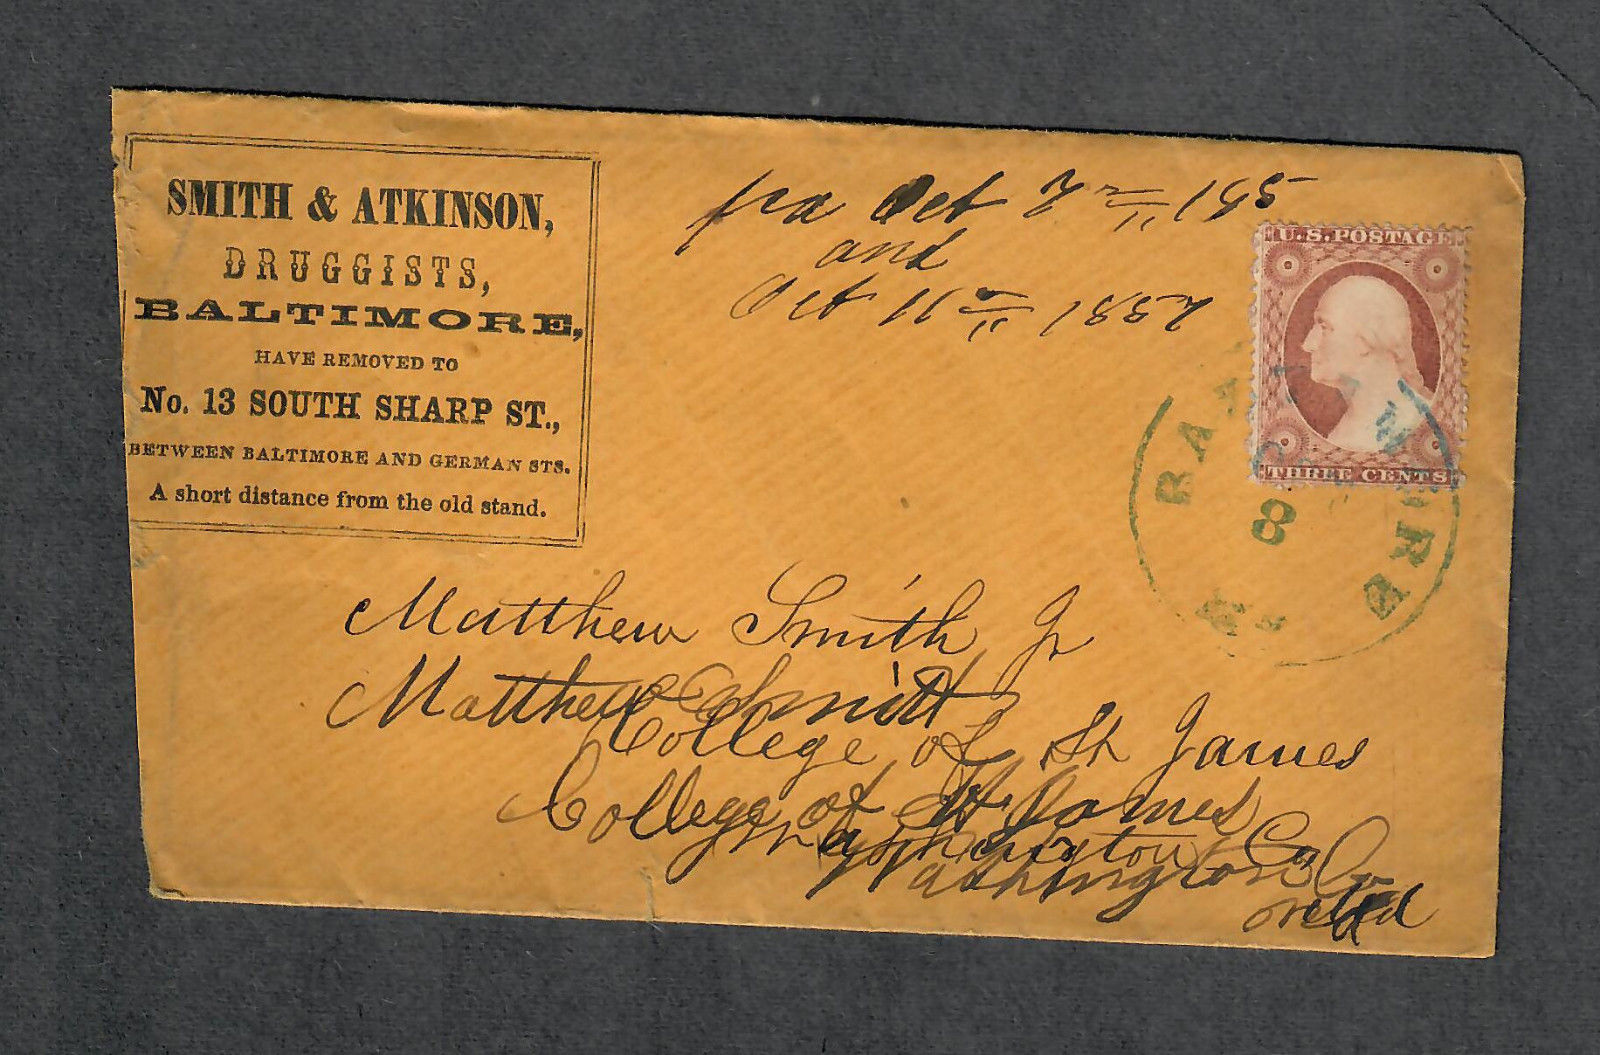 SMITH & ATKINSON,
DRUGGISTS,
BALTIMORE,
HAVE REMOVED TO
No. 13 SOUTH SHARP ST.,
BETWEEN BALTIMORE AND GERMAN STS.
A short distance from the old stand.
Oct
and
Oct 11 1857
U.S. POSTAGE
THREE CENTS
8
Matthew Smith Jr
Matthew Smith
College of St James
College of St James
Washington Co
Washington Co
Md